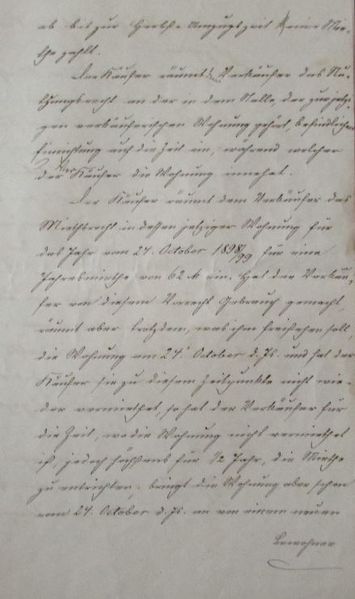 ab bis zur Herbst-Umzugszeit keine Mie-
the zahlt.
Der Käufer räumt d. Verkäufer das Nu-
tzungsrecht an der in dem Stalle, der zur jetzi-
gen verkäuferischen Wohnung gehört, befindlichen
Einrichtung auf die Zeit ein, während welcher
der Käufer die Wohnung innehat.
Der Käufer räumt dem Verkäufer das
Miethrecht in dessen jetziger Wohnung für
das Jahr vom 24. October 1898/99 für eine
Jahresmiethe von 62 M ein. Hat der Verkäu-
fer von diesem Vorrecht Gebrauch gemacht,
räumt aber trotzdem, was ihm freistehen soll,
die Wohnung am 24. October d. Js. und hat der
Käufer sie zu diesem Zeitpunkte nicht wie-
der vermiethet, so hat der Verkäufer für
die Zeit, wo die Wohnung nicht vermiethet
ist, jedoch höchstens für 1/2 Jahr, die Miethe
zu entrichten; bringt die Wohnung aber schon
vom 24. October d. Js. an von einem neuen
Bewohner